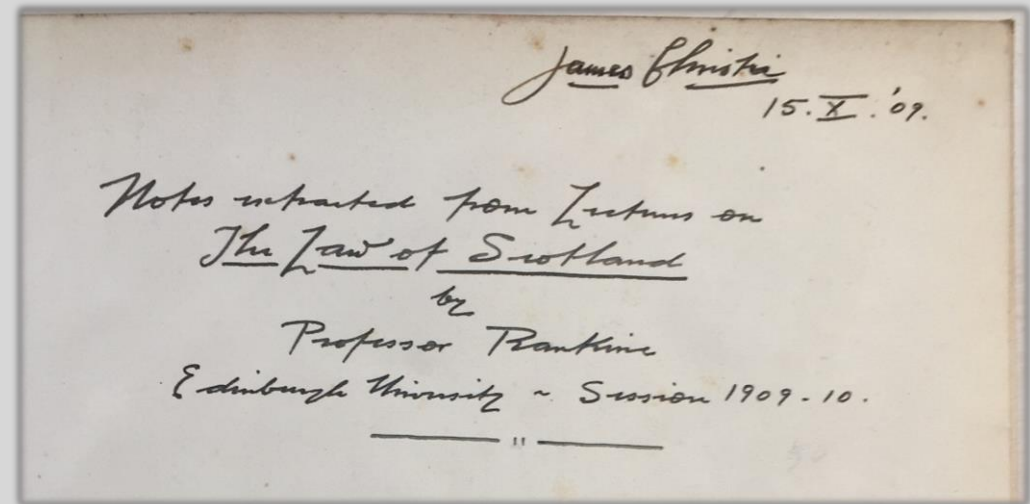 James Christie
15.X.'09.
Notes extracted from Lectures on
The Law of Scotland
by
Professor Rankine
Edinburgh University ~ Session 1909-10.